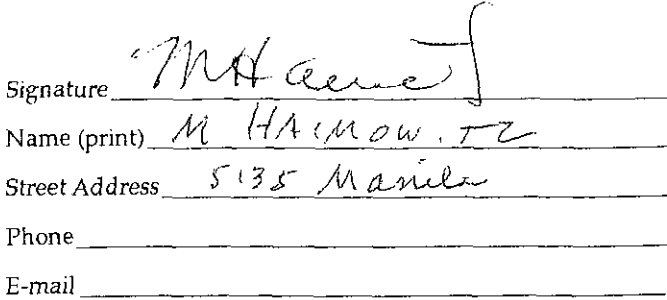 Signature
Name (print) M HAIMOWITZ
Street Address 5135 Manila
Phone
E-mail